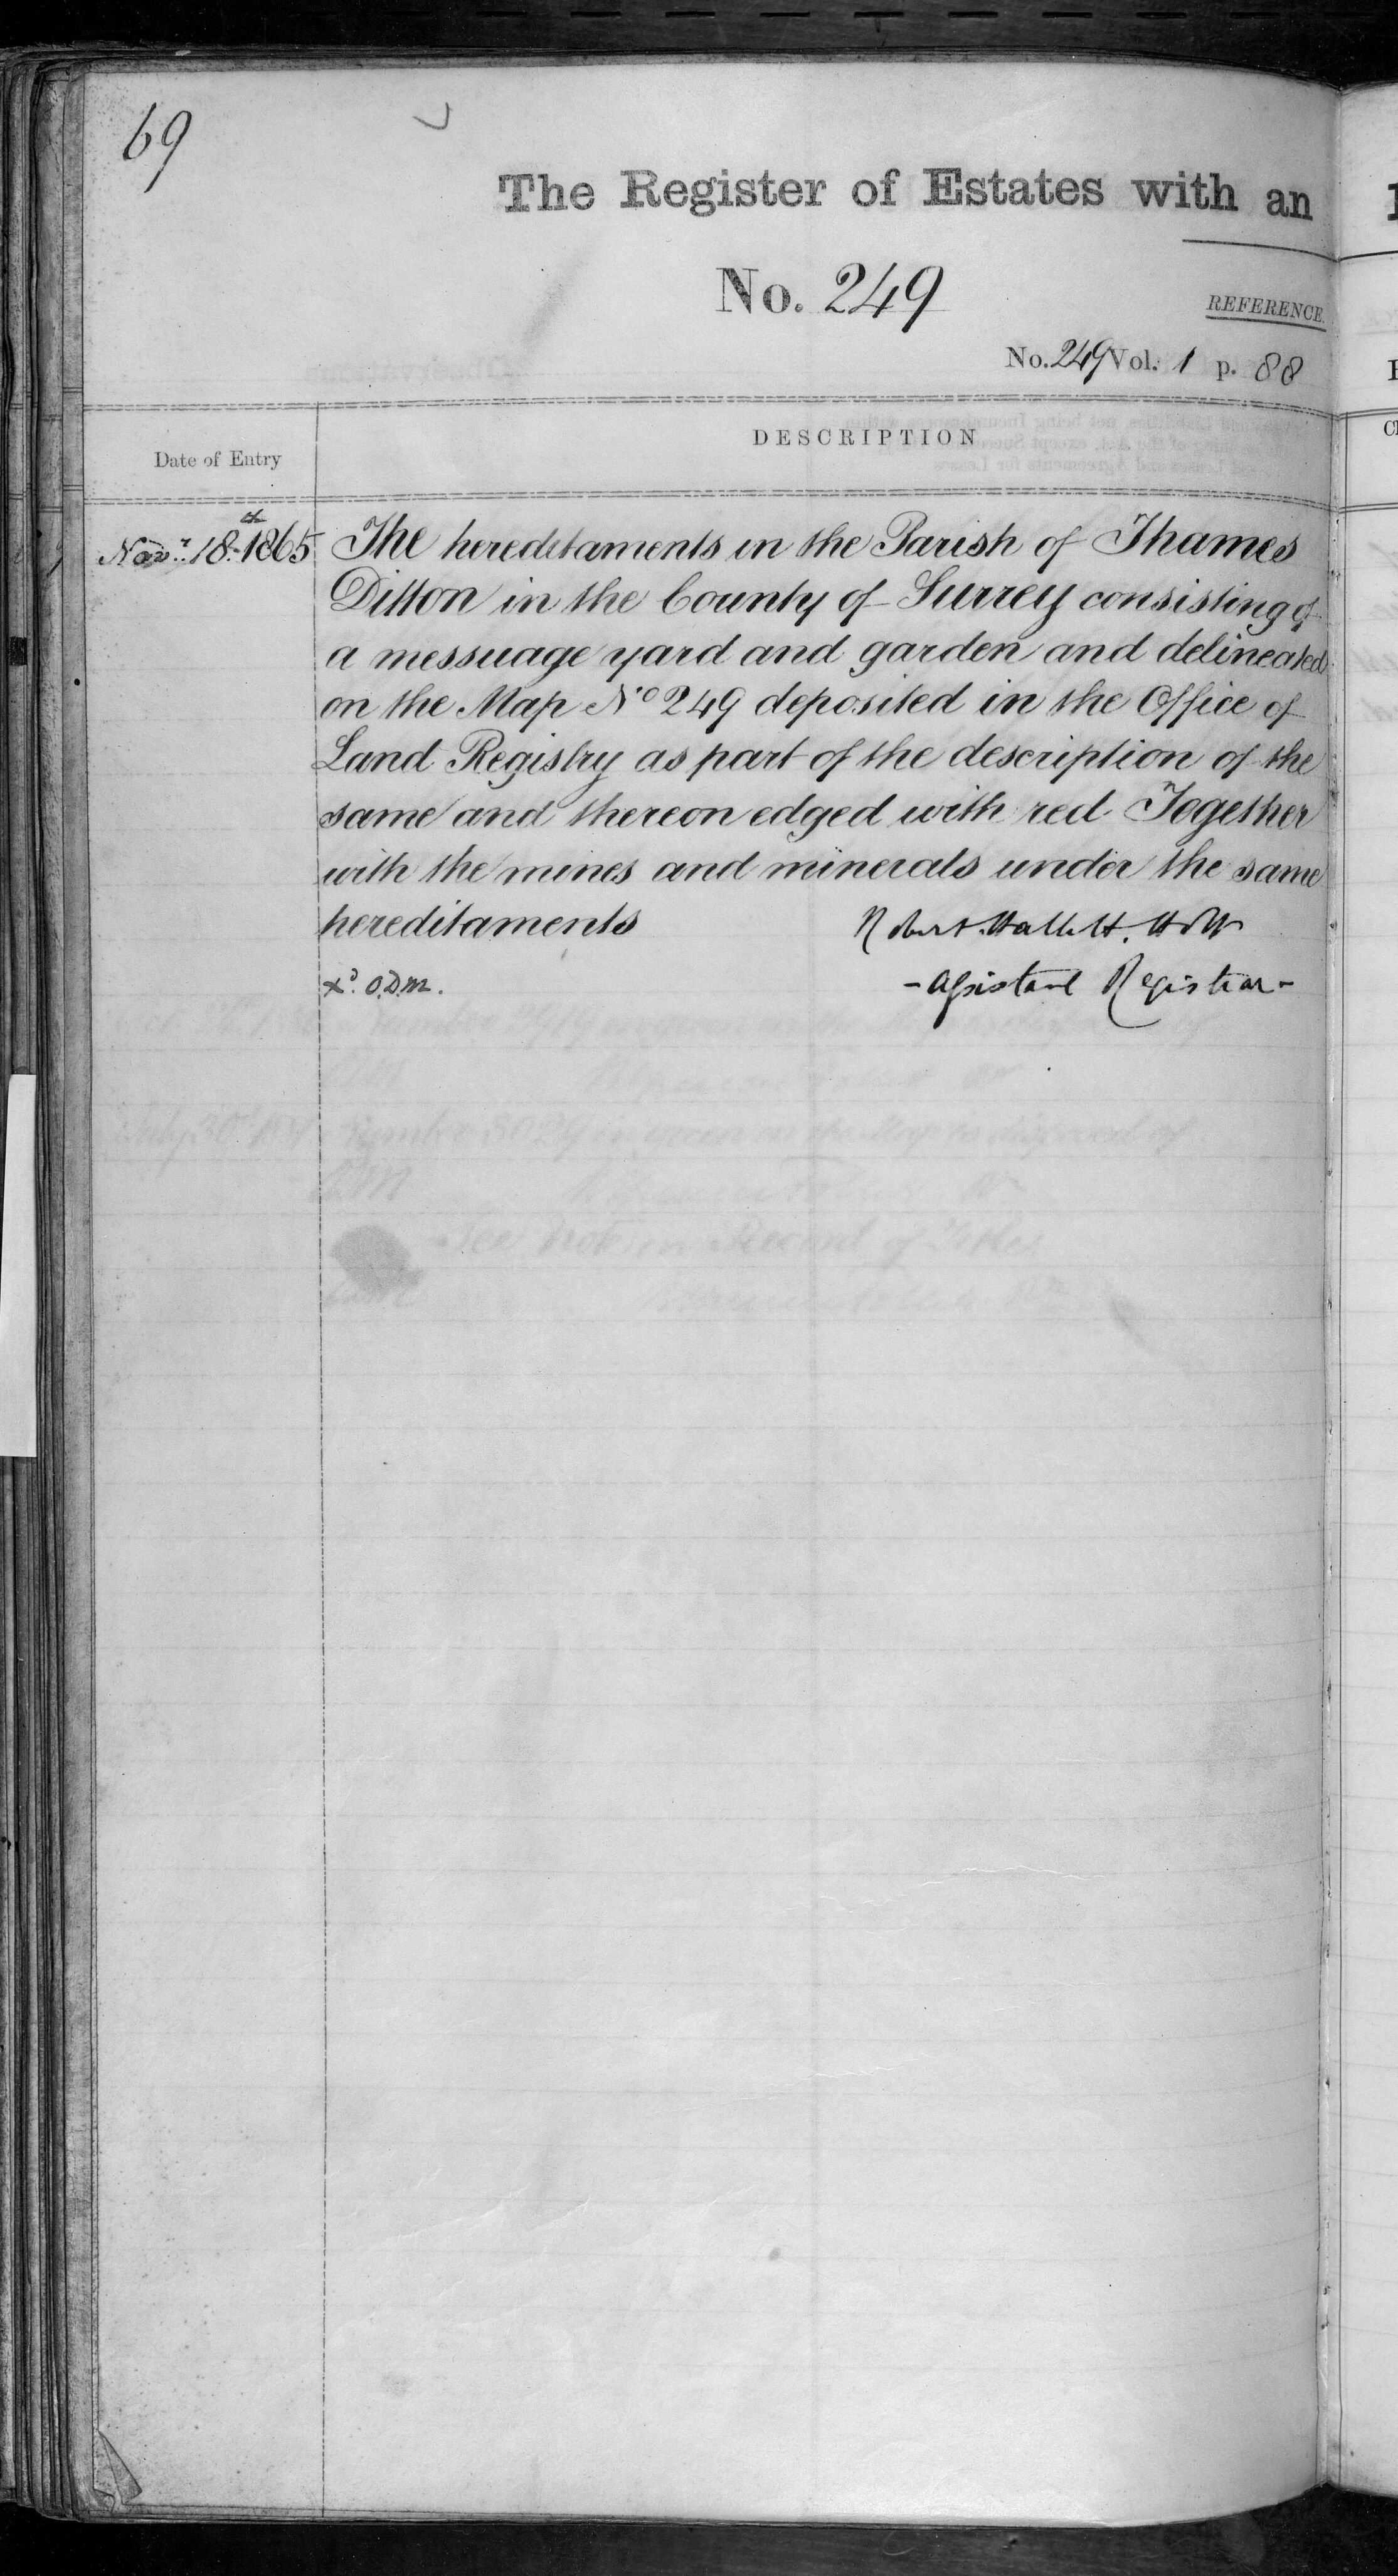 69
The Register of Estates with an
No. 249
REFERENCE.
No. 249 Vol. 1 p. 88
DESCRIPTION
Date of Entry
Novr. 18th 1865
The hereditaments in the Parish of Thames
Ditton in the County of Surrey consisting of
a messuage yard and garden and delineated
on the Map No 249 deposited in the Office of
Land Registry as part of the description of the
same and thereon edged with red Together
with the mines and minerals under the same
hereditaments
Robert Hallett Holt
xd. O.D.M.
- Assistant Registrar -